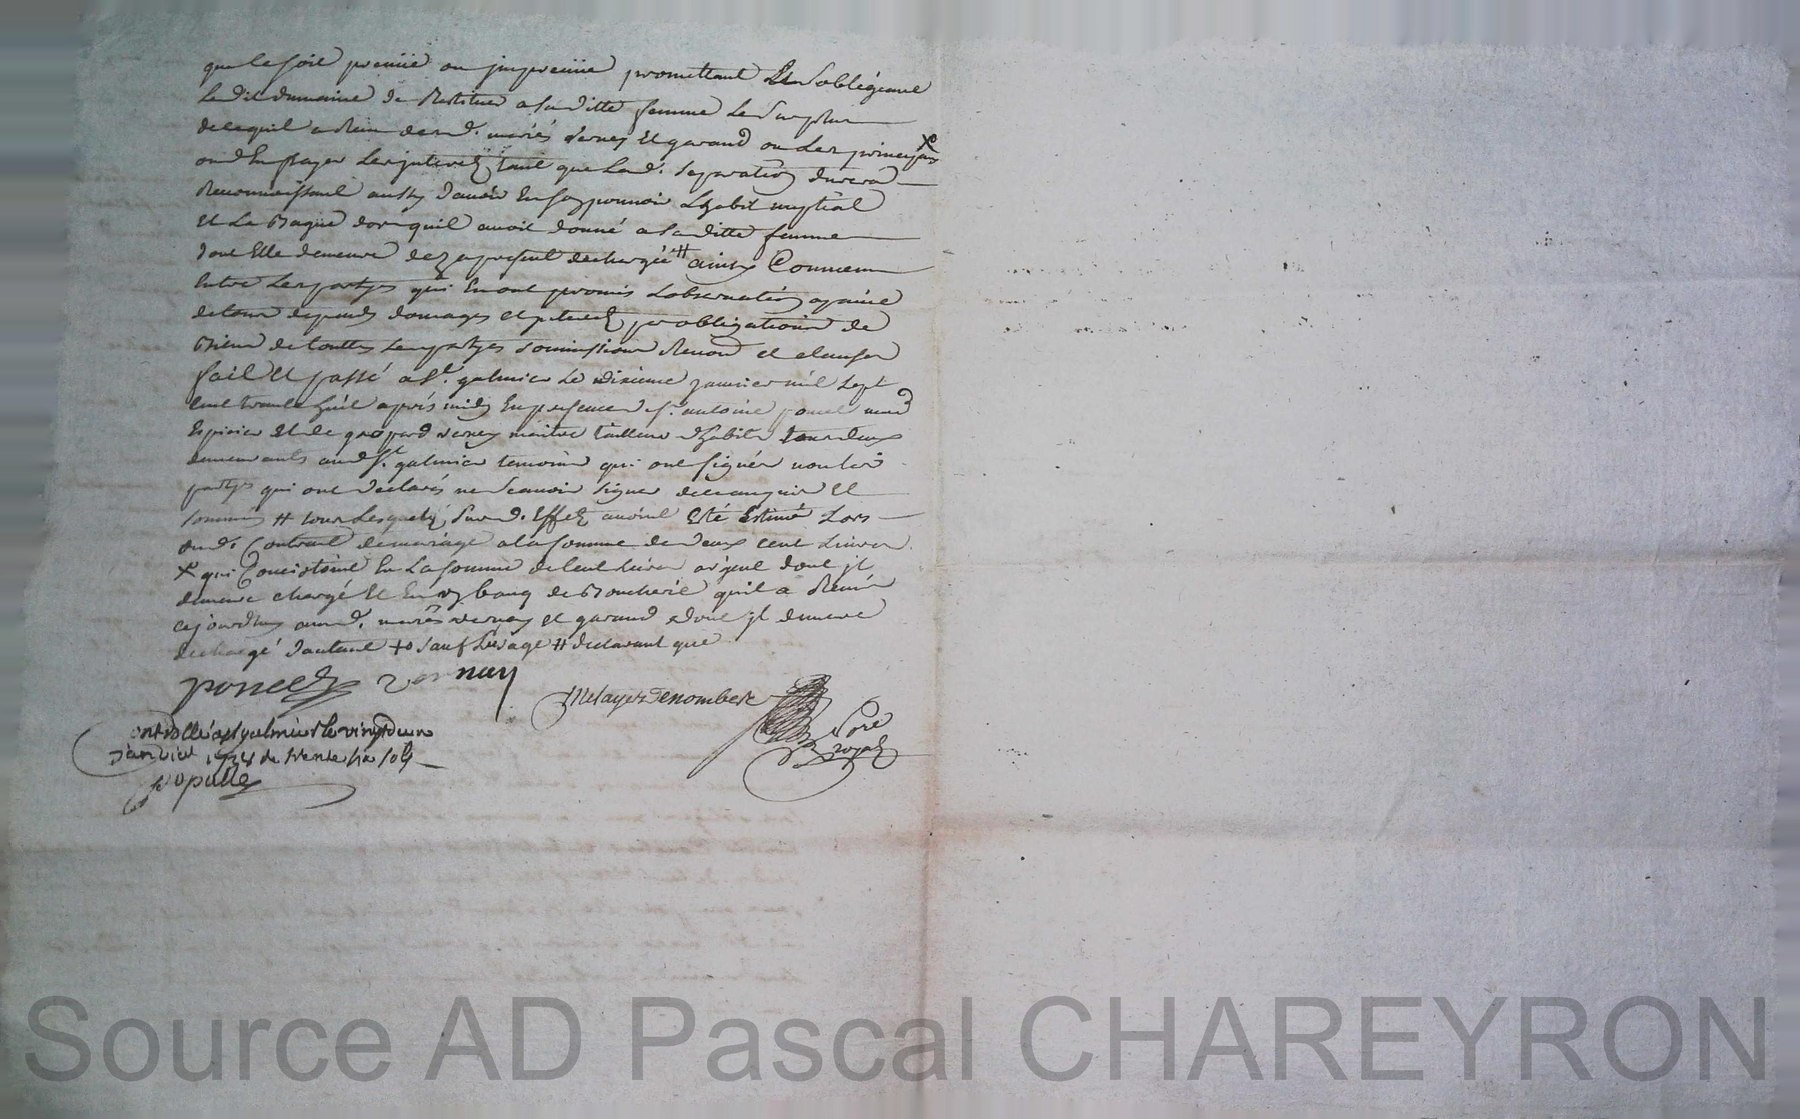 que ce soit promettant Et Sobligeant
Le dit dumaine de Restituer a sa ditte femme Le Surplus
de ce quil a des d. mariés Vernay Et garand ou Les
ou d'En payer Les interets tant que Lad. Separation durera
Reconnaissant aussy davoir En son pouvoir Lhabit nuptial
Et La Bague dor quil avoit donné a sa ditte femme
dont Elle demeure dez a present dechargée # ainsy Convenu
Entre Les partyes qui En ont promis Lobservation a peine
de tous depends domages et par obligations de
Biens de touttes Les partyes Soumissions Renon et clauses
fait Et passé a St. galmier Le janvier mil Sept
cent trente huit apres midy En presence de Sr. antoine poncet
Espicier Et de gaspard Vernay maitre tailleur dhabits tous deux
demeurants aud St. galmier temoins qui ont Signés non Les
partyes qui ont declarés ne Scavoir Signer de ce enquis Et
sommés # tous Lesquels Susd. Effets avoint Eté Estimé Lors
dud. Contrat de mariage a la somme de deux cent Livres
x qui Consistoint En La somme de cent Livres argent dont il
demeure chargé Et En un banq de Boucherie quil a Remis
cejourdhuy auxd. mariés vernay et garand dont il demeure
dechargé dautant +o Sauf Lusage # declarant que
poncet Vernay
Metayer Denombert
Nore
royal
Controllé a St galmier le vingt deux
Janvier 1738 de trente six sols